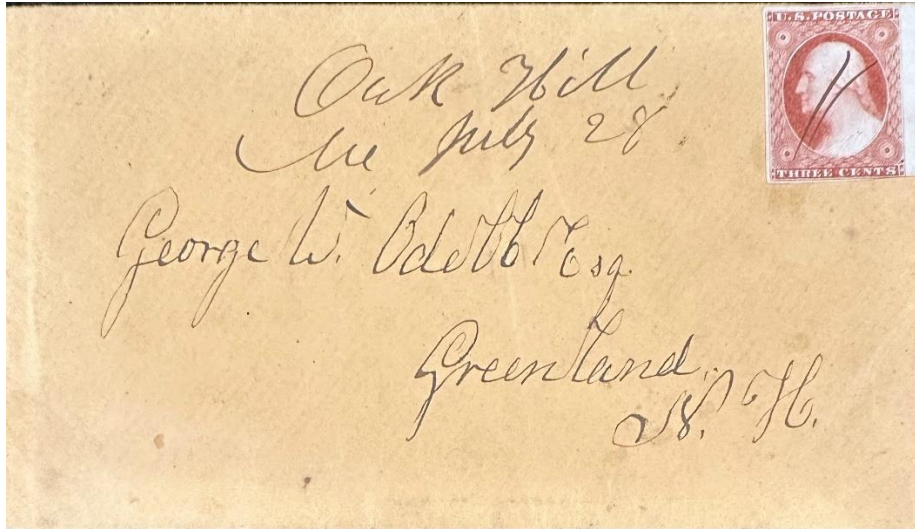 U.S. POSTAGE
THREE CENTS
Oak Hill
Me July 28
George W. Odell Esq.
Greenland,
N. H.